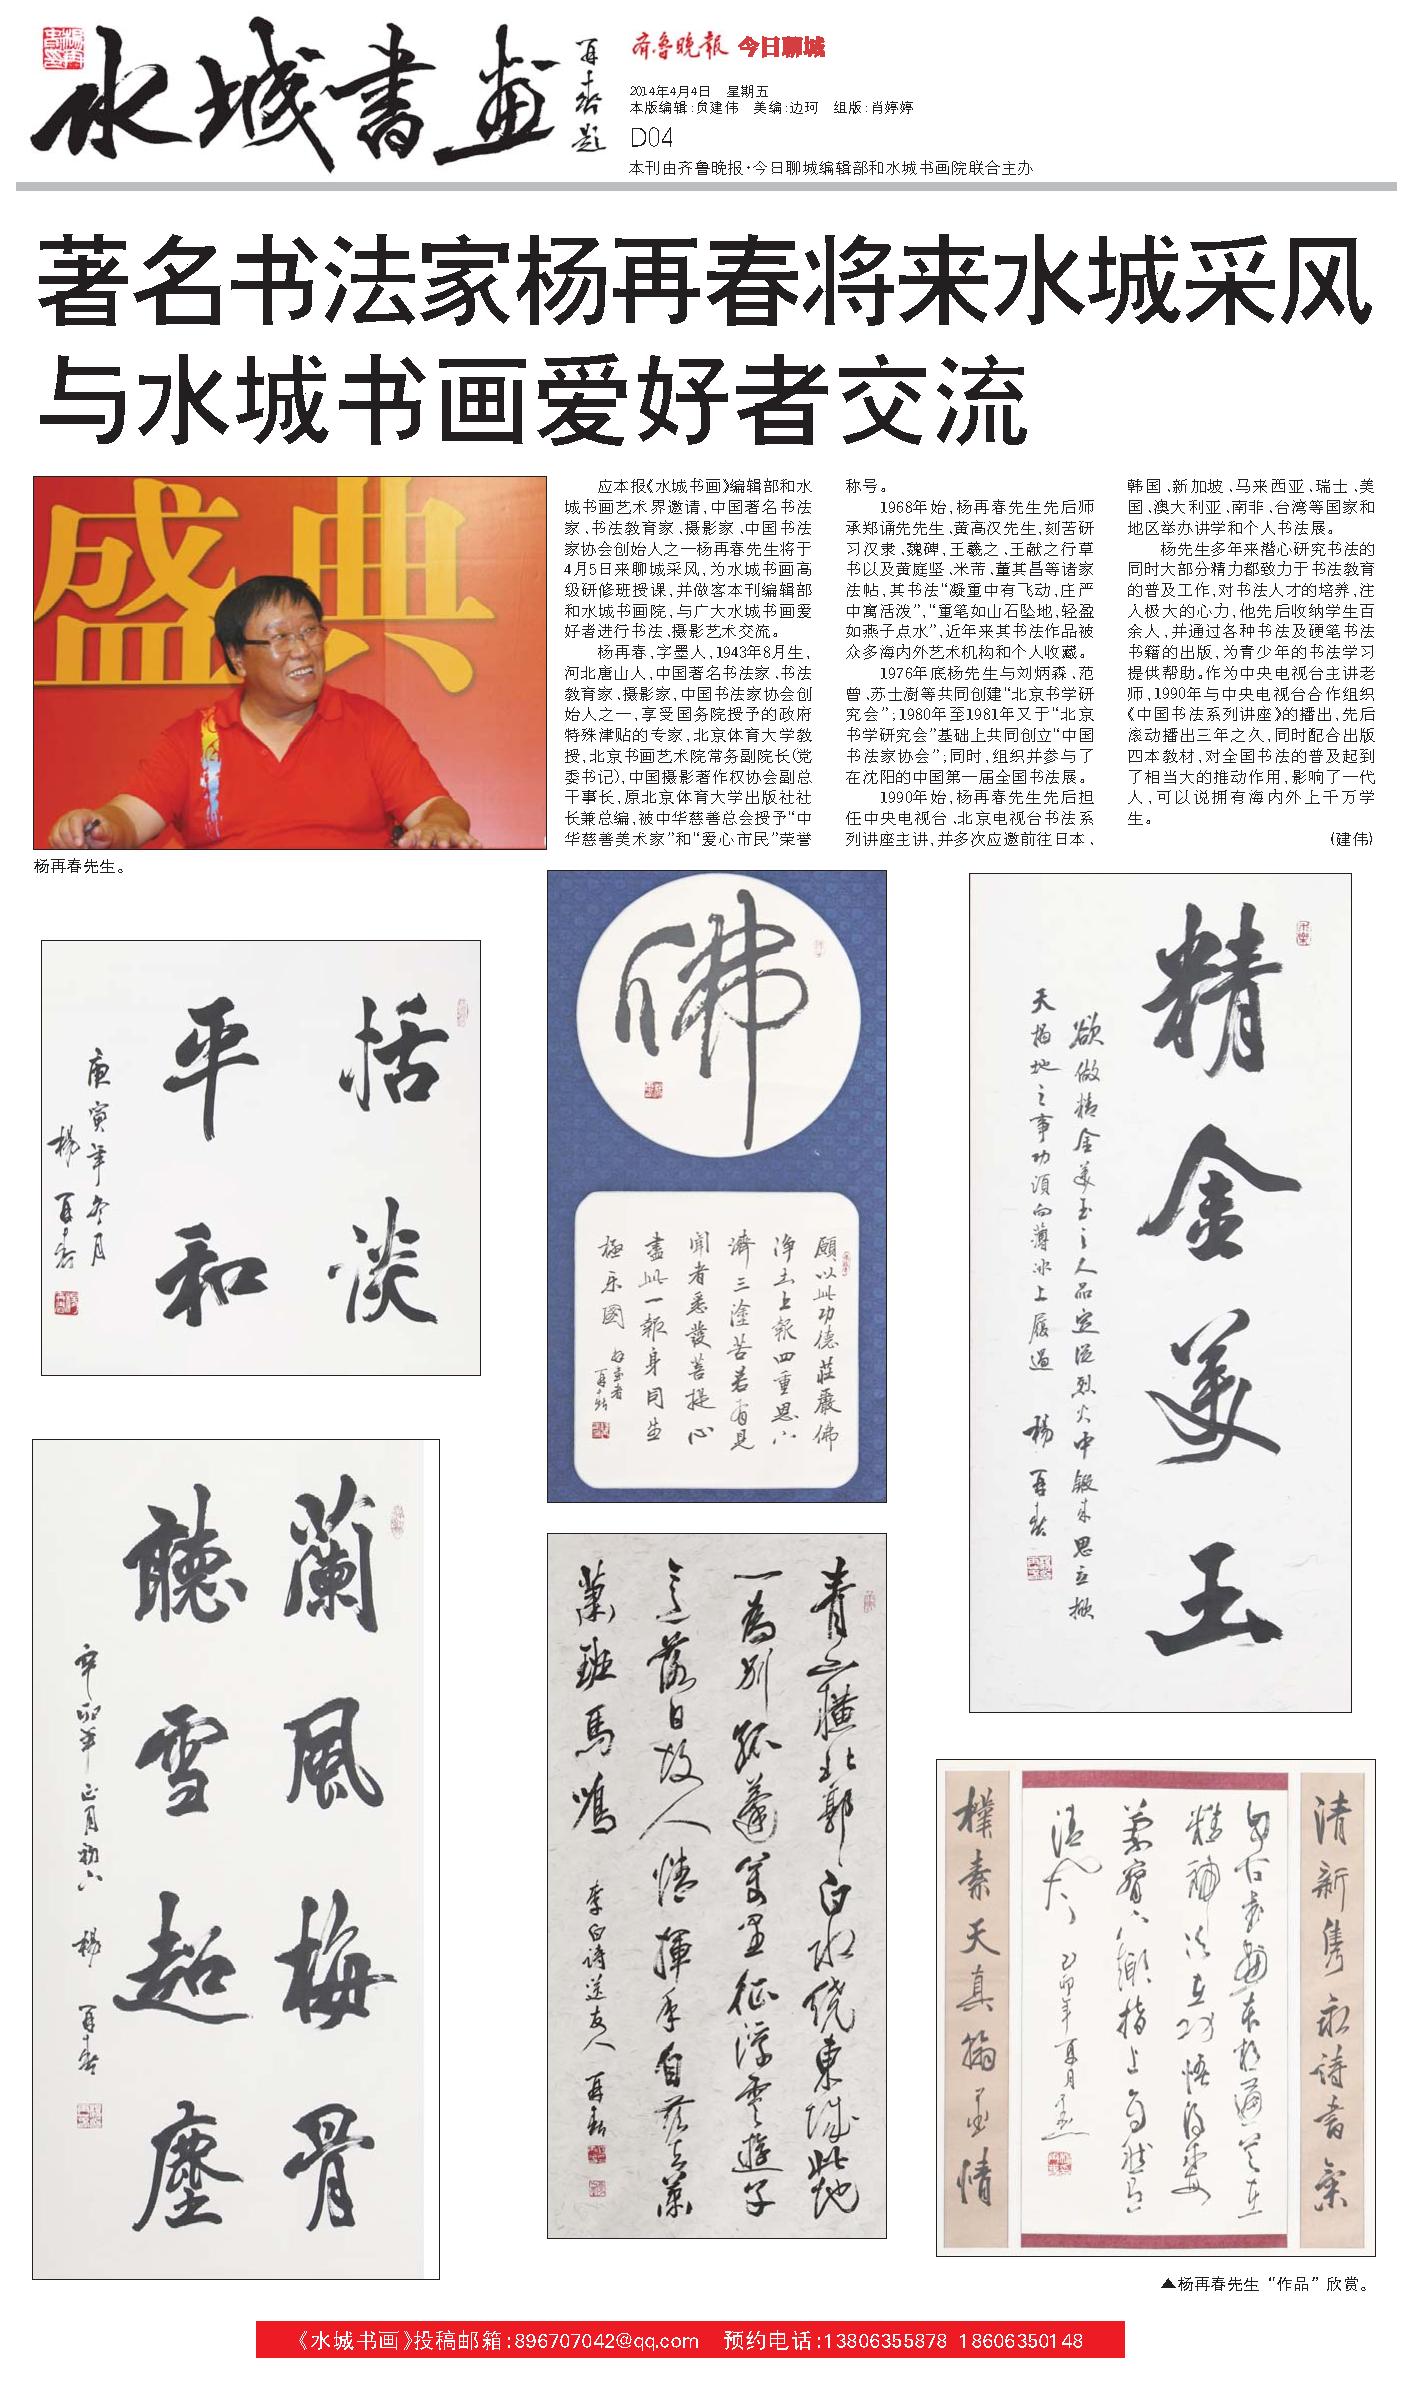 水城書画
再春题
齐鲁晚报 今日聊城
2014年4月4日 星期五
本版编辑:贠建伟 美编:边珂 组版:肖婷婷
D04
本刊由齐鲁晚报·今日聊城编辑部和水城书画院联合主办
著名书法家杨再春将来水城采风
与水城书画爱好者交流
盛典
杨再春先生。
应本报《水城书画》编辑部和水
城书画艺术界邀请,中国著名书法
家、书法教育家、摄影家、中国书法
家协会创始人之一杨再春先生将于
4月5日来聊城采风,为水城书画高
级研修班授课,并做客本刊编辑部
和水城书画院,与广大水城书画爱
好者进行书法、摄影艺术交流。
杨再春,字墨人,1943年8月生,
河北唐山人,中国著名书法家、书法
教育家、摄影家,中国书法家协会创
始人之一,享受国务院授予的政府
特殊津贴的专家,北京体育大学教
授,北京书画艺术院常务副院长(党
委书记),中国摄影著作权协会副总
干事长,原北京体育大学出版社社
长兼总编,被中华慈善总会授予“中
华慈善美术家”和“爱心市民”荣誉
称号。
1968年始,杨再春先生先后师
承郑诵先先生、黄高汉先生,刻苦研
习汉隶、魏碑,王羲之、王献之行草
书以及黄庭坚、米芾、董其昌等诸家
法帖,其书法“凝重中有飞动,庄严
中寓活泼”,“重笔如山石坠地,轻盈
如燕子点水”,近年来其书法作品被
众多海内外艺术机构和个人收藏。
1976年底杨先生与刘炳森、范
曾、苏士澍等共同创建“北京书学研
究会”;1980年至1981年又于“北京
书学研究会”基础上共同创立“中国
书法家协会”;同时,组织并参与了
在沈阳的中国第一届全国书法展。
1990年始,杨再春先生先后担
任中央电视台、北京电视台书法系
列讲座主讲,并多次应邀前往日本、
韩国、新加坡、马来西亚、瑞士、美
国、澳大利亚、南非、台湾等国家和
地区举办讲学和个人书法展。
杨先生多年来潜心研究书法的
同时大部分精力都致力于书法教育
的普及工作,对书法人才的培养,注
入极大的心力,他先后收纳学生百
余人,并通过各种书法及硬笔书法
书籍的出版,为青少年的书法学习
提供帮助。作为中央电视台主讲老
师,1990年与中央电视台合作组织
《中国书法系列讲座》的播出,先后
滚动播出三年之久,同时配合出版
四本教材,对全国书法的普及起到
了相当大的推动作用,影响了一代
人,可以说拥有海内外上千万学
生。
(建伟)
恬淡
平和
庚寅年冬月
楊再春
佛
願以此功德莊嚴佛
淨土上報四重恩下
濟三塗苦若有見
聞者悉發菩提心
盡此一報身同生
極乐國
再春
精金美玉
欲做精金美玉之人品定從烈火中鍛来思立掀
天揭地之事功須向薄冰上履過 楊再春
蘭風梅骨
聽雪超塵
辛卯年正月初六 楊再春
青山橫北郭白水繞東城此地
一為別孤蓬萬里征浮雲遊子
意落日故人情揮手自茲去蕭
蕭班馬鳴
李白诗送友人 再春
清新雋永詩書氣
樸素天真翰墨情
▲杨再春先生“作品”欣赏。
《水城书画》投稿邮箱:896707042@qq.com 预约电话:13806355878 18606350148